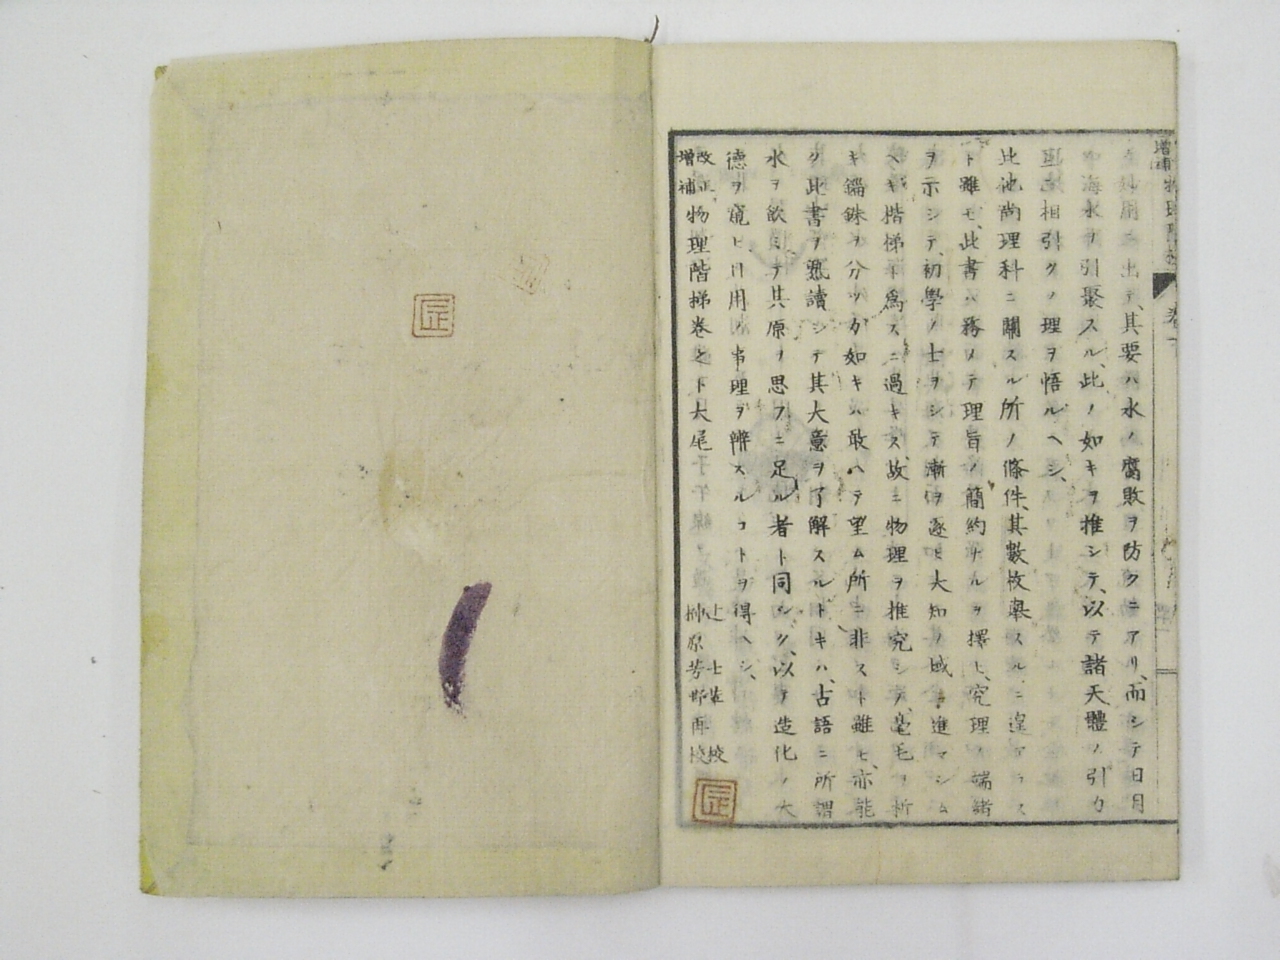 其要ハ水ノ腐敗ヲ防クニアリ、而シテ日月
海水ヲ引聚スル、此ノ如キヲ推シテ、以テ諸天體ノ引力
互ニ相引クノ理ヲ悟ルヘシ、
此他尚理科ニ關スル所ノ條件、其數枚擧スルニ遑アラス
ト雖モ、此書ハ務メテ理旨ノ簡約ナルヲ擇ヒ、究理ノ端緒
ヲ示シテ、初學ノ士ヲシテ漸ヲ逐ヒ大知ノ域ニ進マシム
ヘキ楷梯ト爲スニ過キス、故ニ物理ヲ推究シテ、毫毛ヲ析
キ錙銖ヲ分ツカ如キハ敢ヘテ望ム所ニ非スト雖モ、亦能
ク此書ヲ熟讀シテ其大意ヲ了解スルトキハ、古語ニ所謂
水ヲ飲ミテ其原ノ思フニ足ル者ト同シク、以テ造化ノ大
德ヲ窺ヒ、日用ノ事理ヲ辨スルコトヲ得ヘシ、
改正增補物理階梯卷之下大尾
辻 士革 校
榊原芳野再校